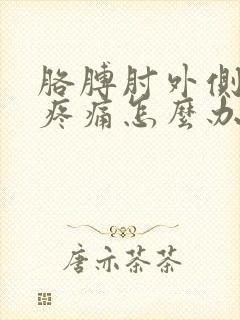 胳膊肘外側
疼痛怎麼办
唐亦茶茶